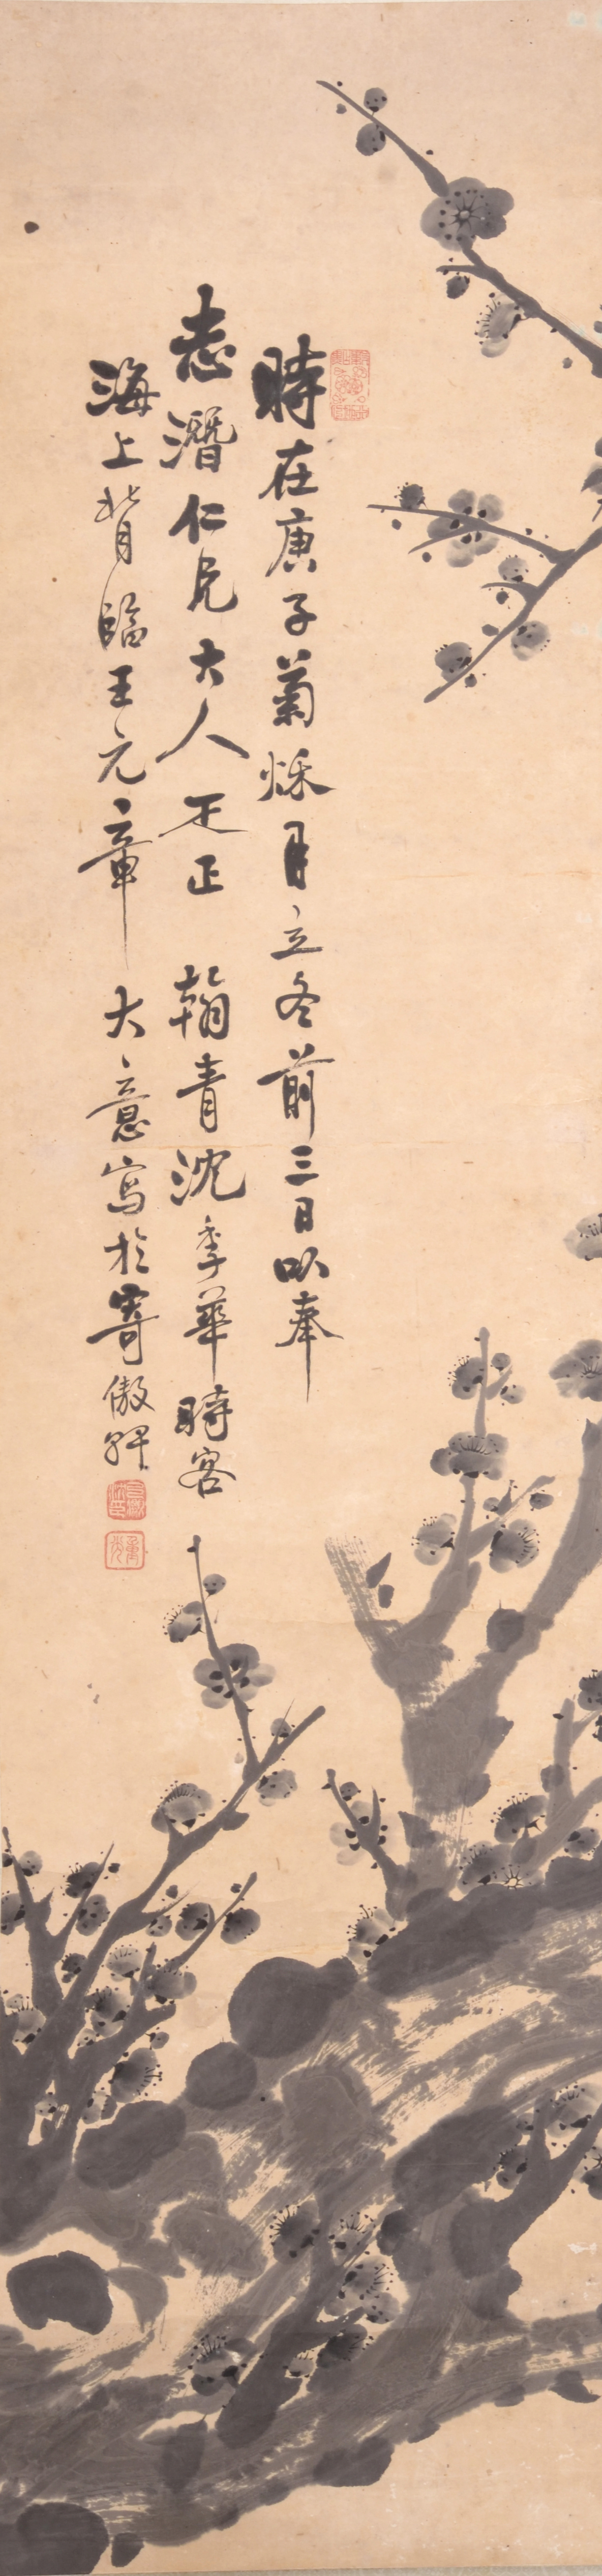 時在庚子菊秌月立冬前三日以奉
志潛仁兄大人正 翰青沈季華時客
海上背臨王元章大意寫於寄傲軒